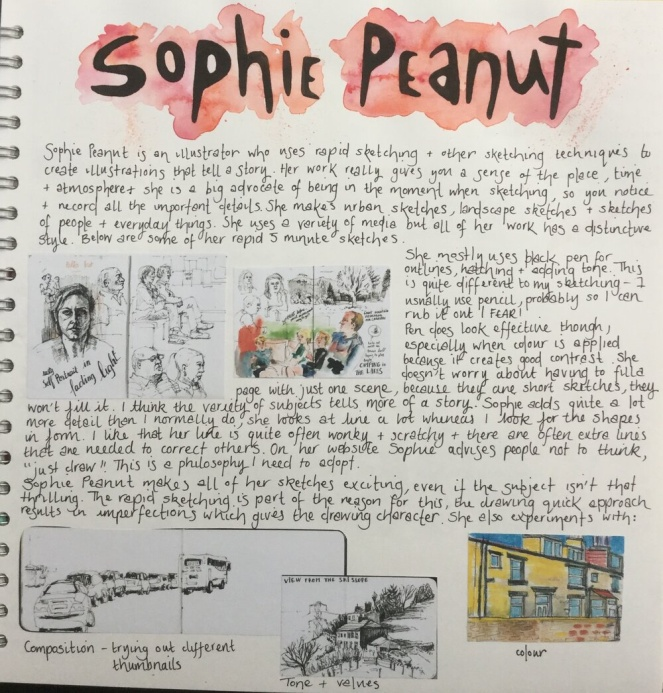 Sophie Peanut
Sophie Peanut is an illustrator who uses rapid sketching + other sketching techniques to
create illustrations that tell a story. Her work really gives you a sense of the place, time
+ atmosphere + she is a big advocate of being in the moment when sketching, so you notice
+ record all the important details. She makes urban sketches, landscape sketches + sketches
of people + everyday things. She uses a variety of media but all of her work has a distinctive
style. Below are some of her rapid 5 minute sketches.
Self Portrait in
fading light
She mostly uses black pen for
outlines, hatching + adding tone. This
is quite different to my sketching - I
usually use pencil, probably so I can
rub it out! FEAR!
Pen does look effective though,
especially when colour is applied
because it creates good contrast. She
doesn't worry about having to fill a
page with just one scene, because they are short sketches, they
won't fill it. I think the variety of subjects tells more of a story. Sophie adds quite a lot
more detail than I normally do, she looks at line a lot whereas I look for the shapes
in form. I like that her line is quite often wonky + scratchy + there are often extra lines
that are needed to correct others. On her website Sophie advises people not to think,
"just draw"!! This is a philosophy I need to adopt.
Sophie Peanut makes all of her sketches exciting, even if the subject isn't that
thrilling. The rapid sketching is part of the reason for this, the drawing quick approach
results in imperfections which gives the drawing character. She also experiments with:
VIEW FROM THE SKI SLOPE
Composition - trying out different
thumbnails
Tone + values
colour